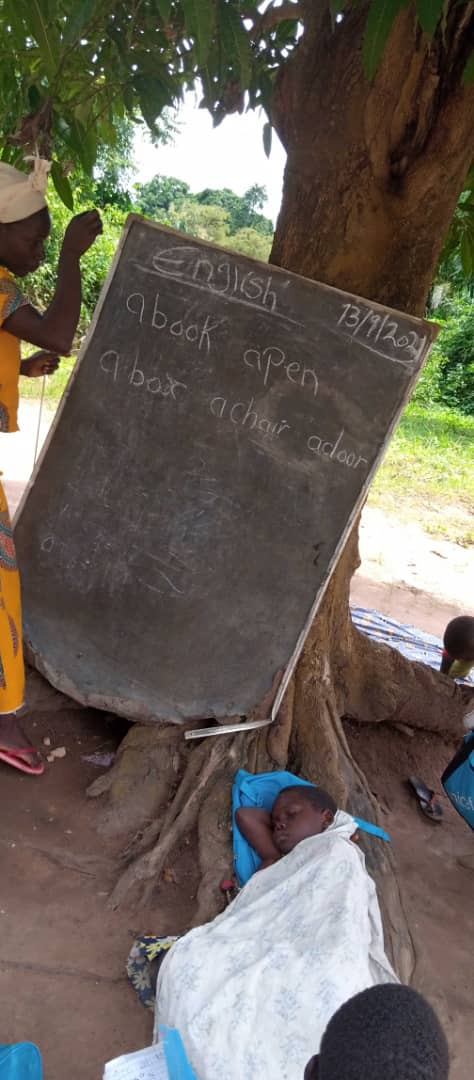 English
13/9/2021
a book a pen
a box a chair a door